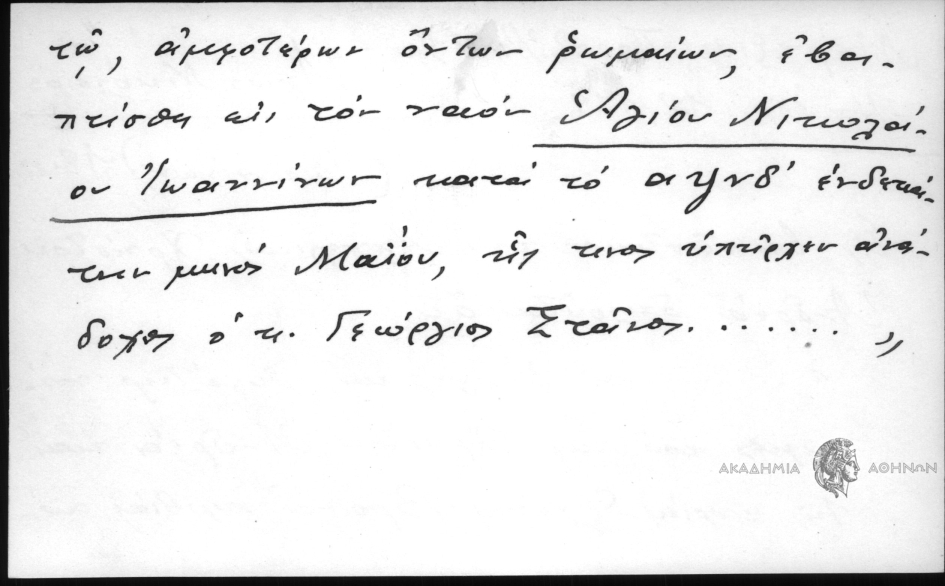 τῷ, ἀμφοτέρων ὄντων ῥωμαίων, ἐβα-
πτίσθη εἰς τὸν ναὸν Ἁγίου Νικολά-
ου Ἰωαννίνων κατὰ τὸ αψνδ' ἑνδεκά-
την μηνὸς Μαΐου, ἧς τινος ὑπῆρχεν ἀνά-
δοχος ὁ κ. Γεώργιος Σταῖνος. ...... „
ΑΚΑΔΗΜΙΑ ΑΘΗΝΩΝ